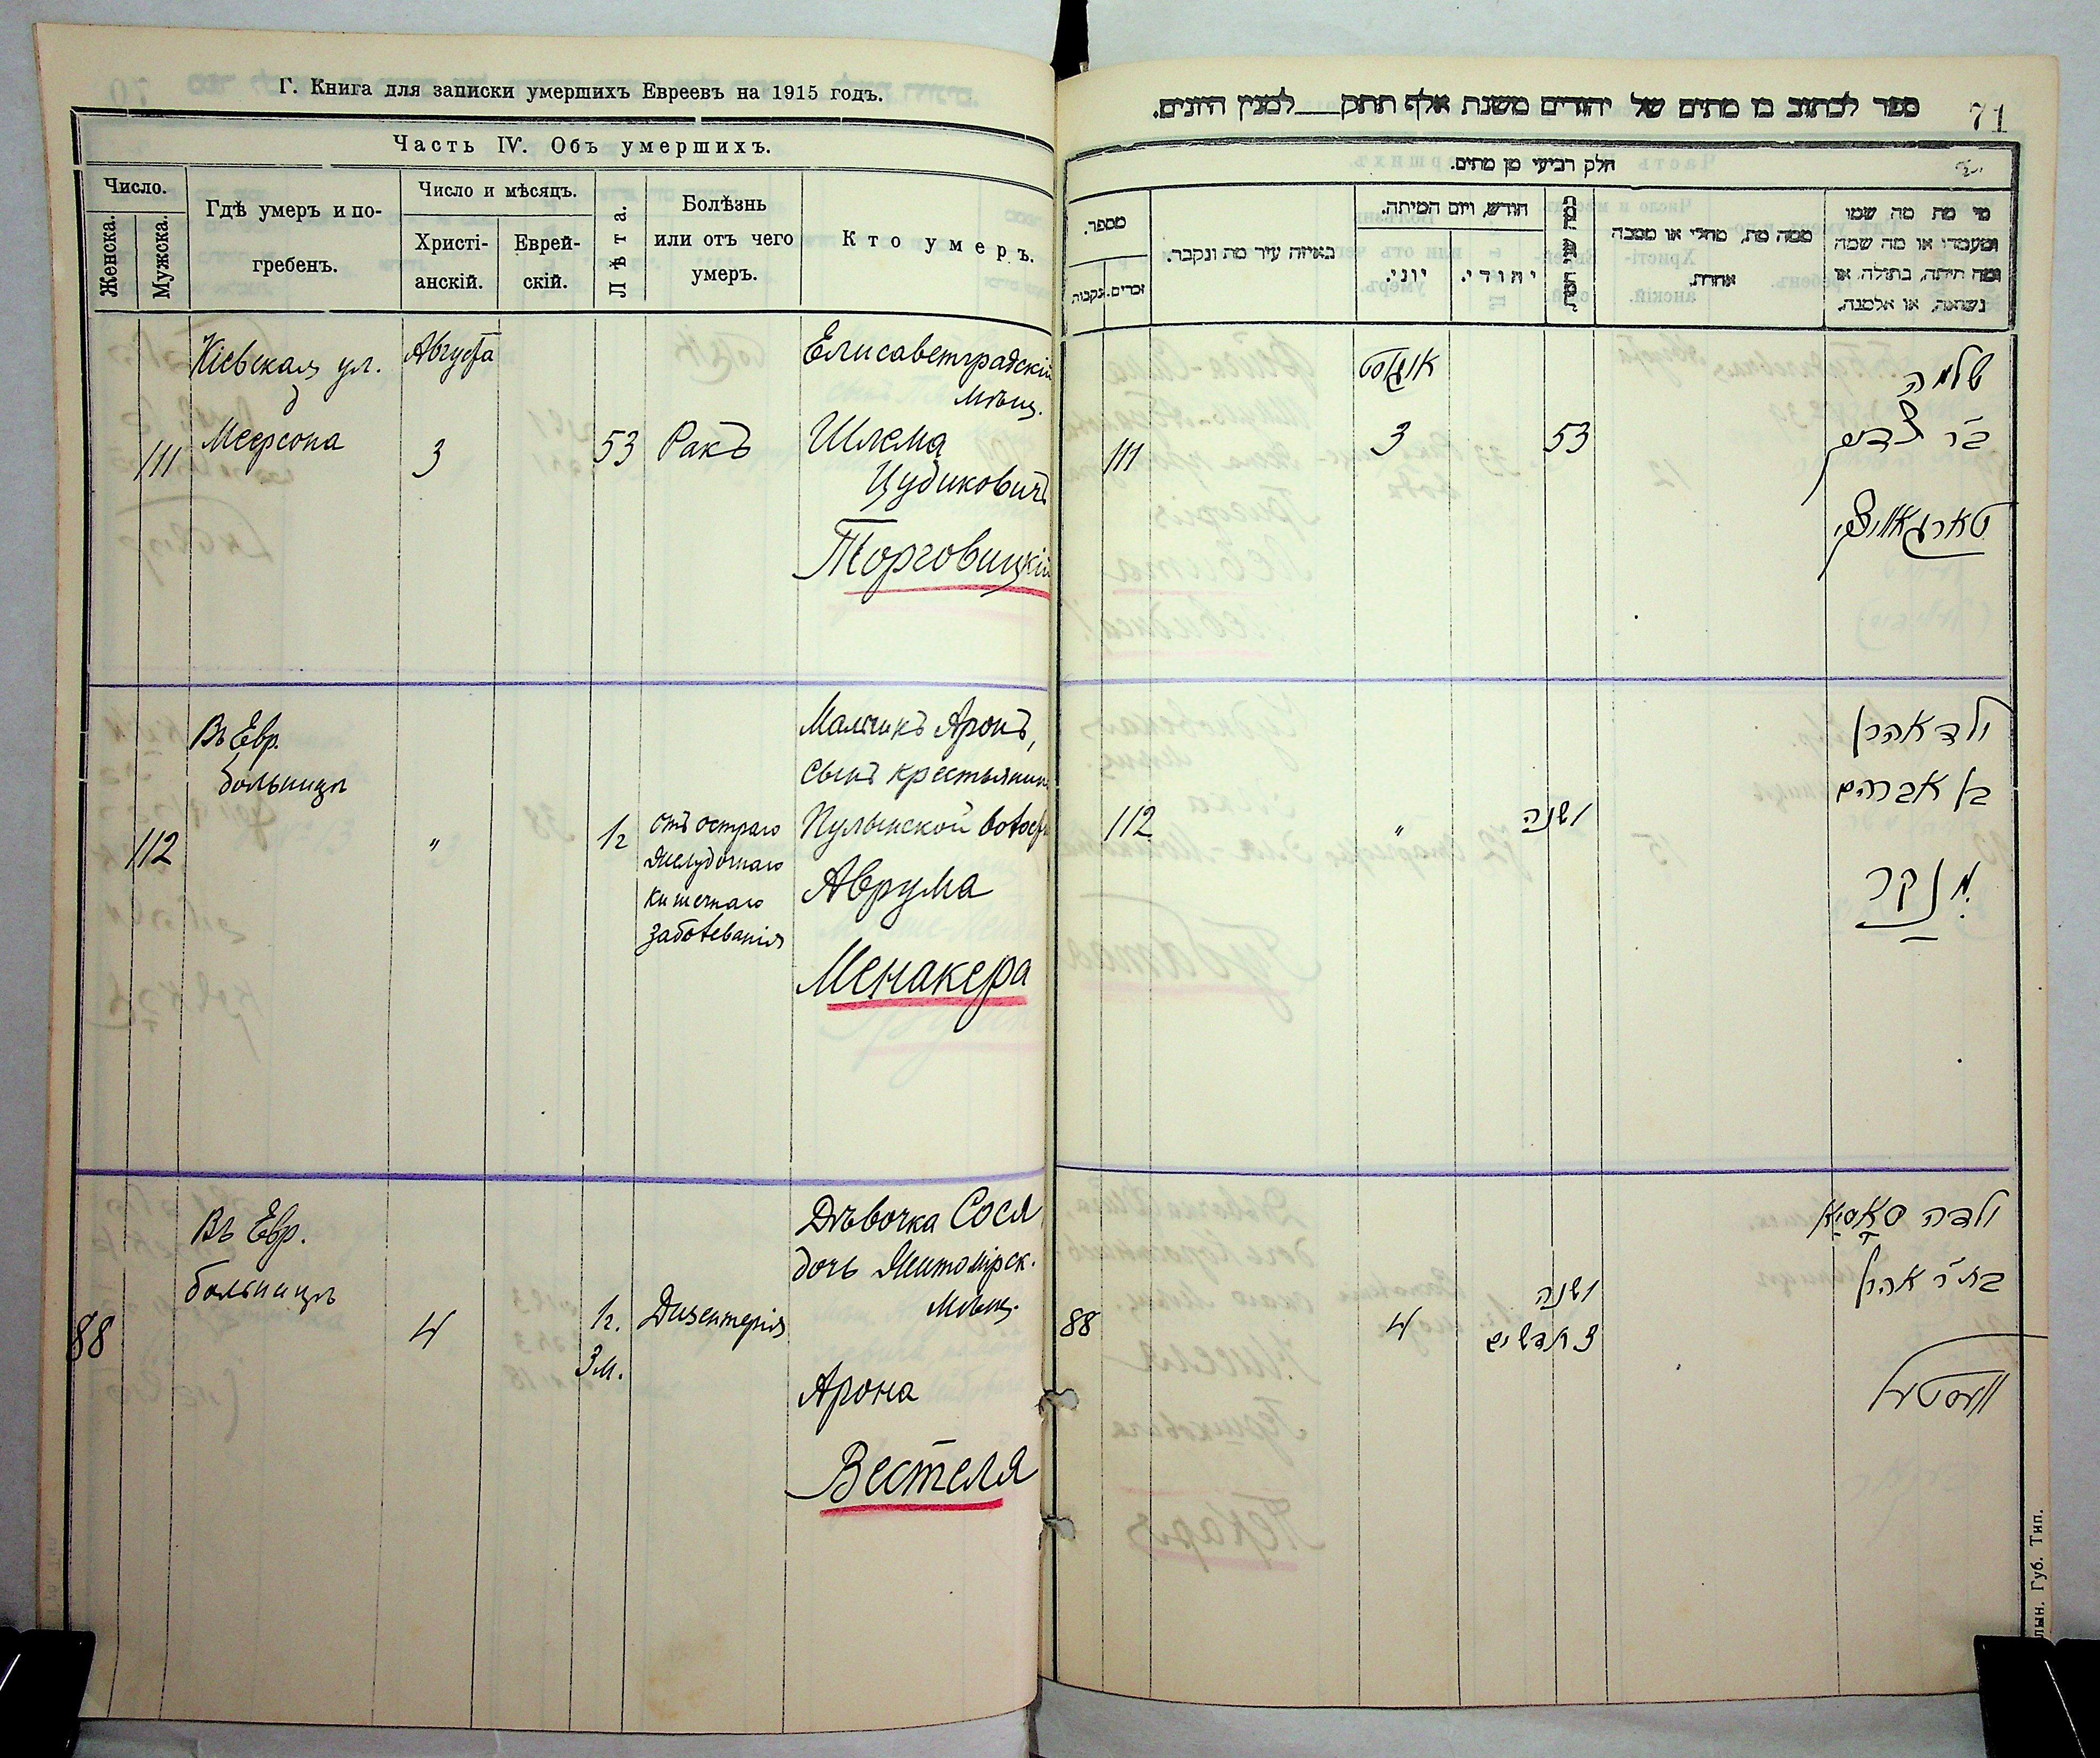 Г. Книга для записки умершихъ Евреевъ на 1915 годъ.
Часть IV. Объ умершихъ.
Число.
Женска.
Мужска.
Гдѣ умеръ и по-
гребенъ.
Число и мѣсяцъ.
Христі-
анскій.
Еврей-
скій.
Лѣта.
Болѣзнь
или отъ чего
умеръ.
Кто умеръ.
111
Кіевская ул.
д
Меерсона
Августа
3
53
Ракъ
Елисаветградскій
мѣщ.
Шлема
Цудиковичъ
Торговицкій
112
Въ Евр.
больницѣ
"
1г
отъ остраго
желудочнаго
кишечнаго
заболеванія
Мальчикъ Аронъ,
сынъ крестьянина
Пулинской волости
Аврума
Менакера
88
Въ Евр.
больницѣ
4
1г.
3м.
Дизентерія
Дѣвочка Сося
дочь Житомірск.
мѣщ.
Арона
Вестеля
71
ספר לכתוב בו מתים של יהודים משנת אלף תתק למנין היונים.
חלק רביעי מן מתים.
מספר.
זכרים.
נקבות.
באיזה עיר מת ונקבר.
חודש, ויום המיתה.
יוני.
יהודי.
ממה מת, מחלי או ממכה
אחרת.
מי מת מה שמו
ומעמדו או מה שמה
ומה היתה, בתולה, או
נשואה, או אלמנה.
111
אוגוסט
3
53
שלמה
ב״ר
112
"
1 שנה
ילד אהרן
בן אברהם
מנקר
88
4
1 שנה
3 חדשים
ילדה סאסיא
בת ר׳ אהרן
וועסטעל
лын. Губ. Тип.